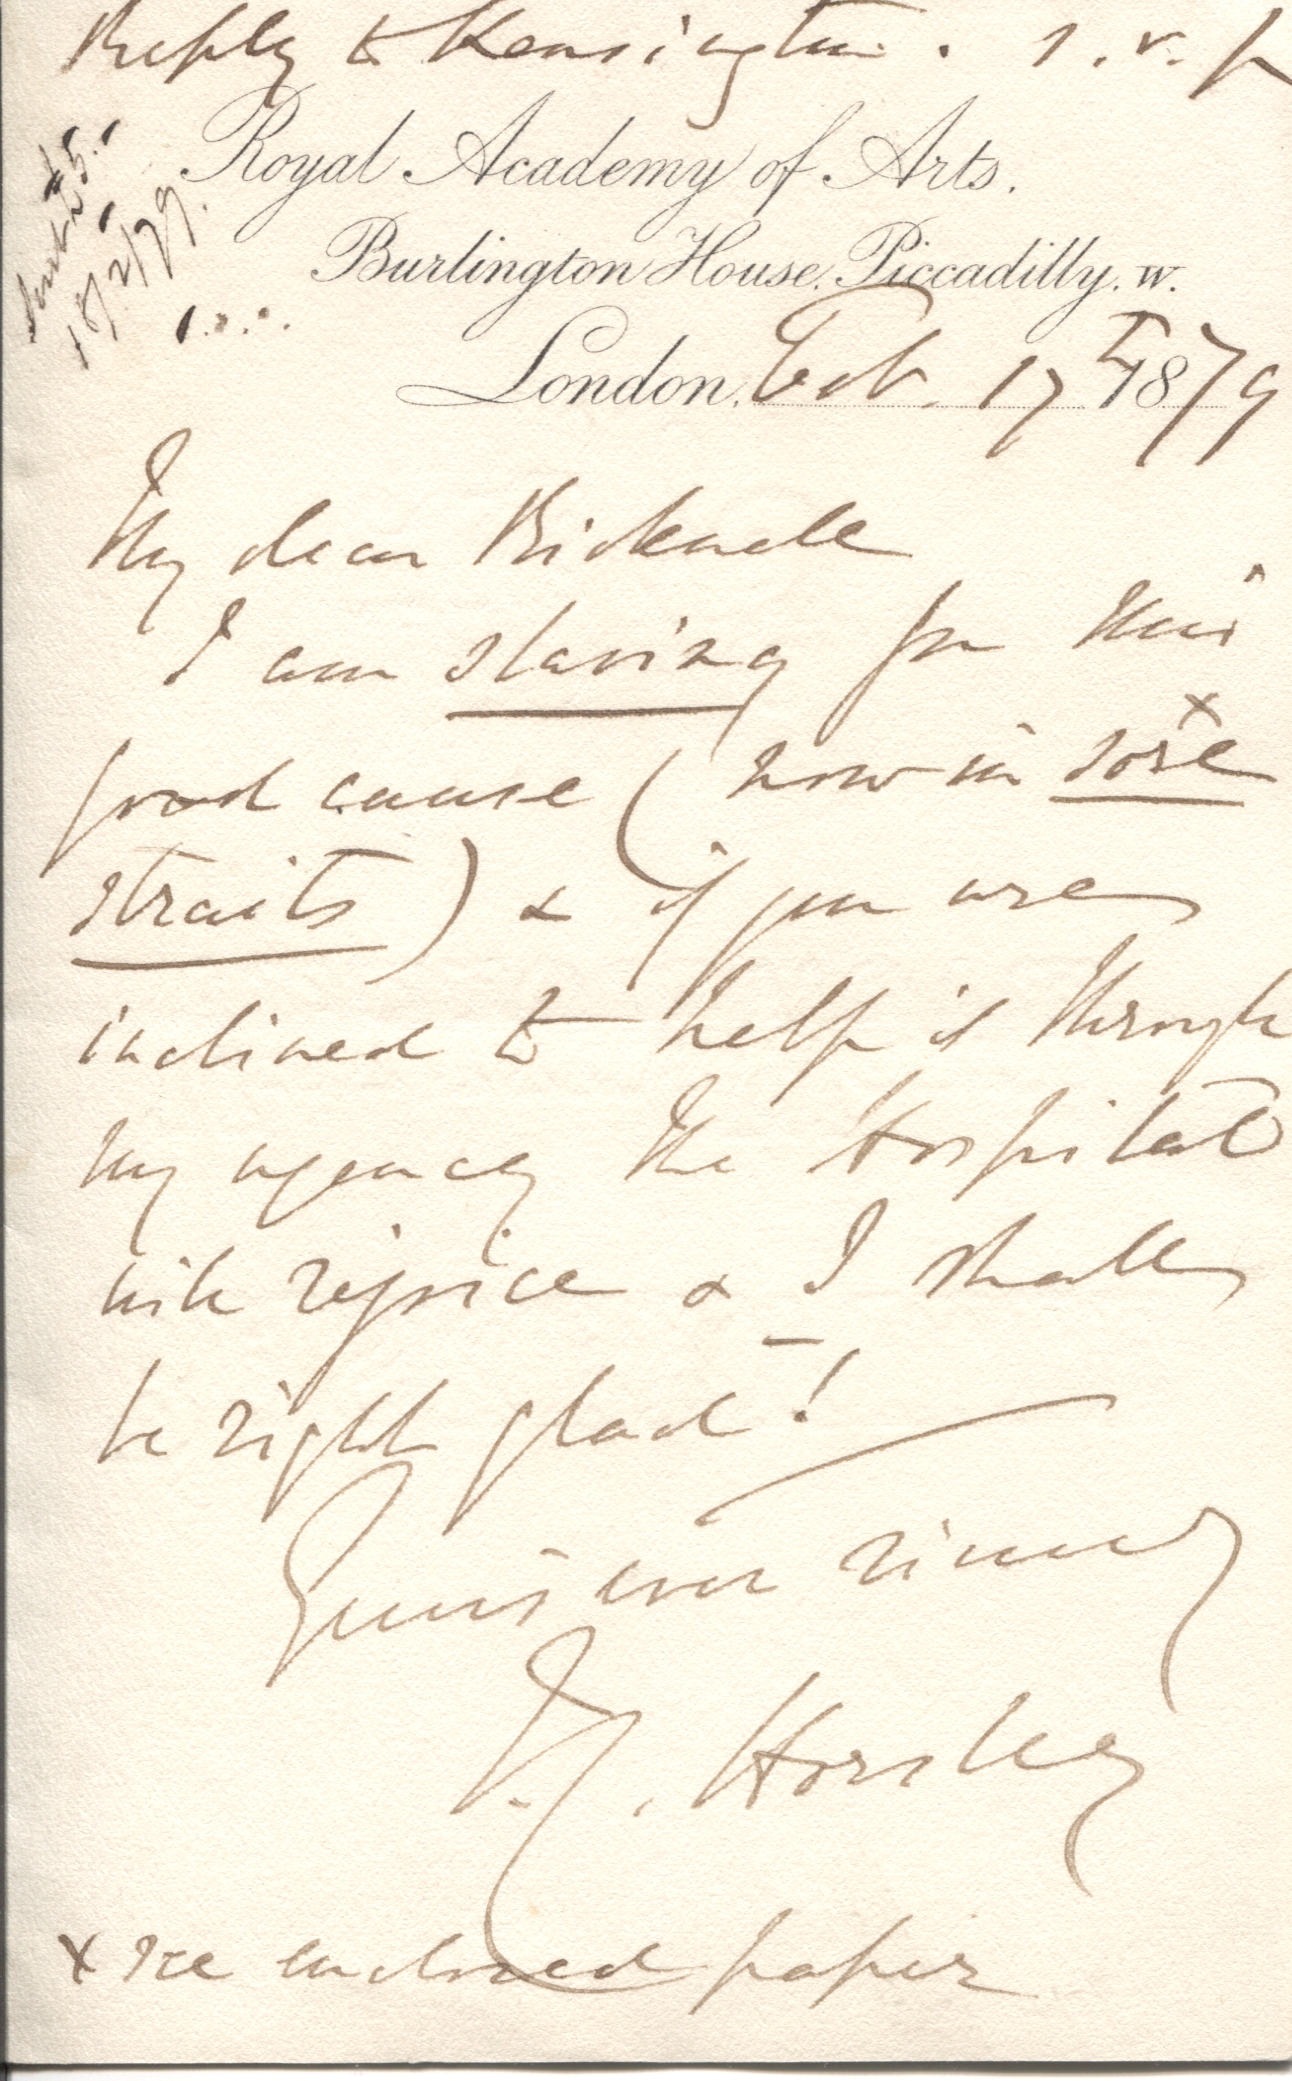 Reply to Kensington. r.v.p
Royal Academy of Arts.
£5..
18/2/79.
Burlington House, Piccadilly. W.
London, Feb. 17th 1879
My dear Bicknell
I am slaving for this
good cause (now in sore x
straits) & if you are
inclined to help it through
my agency the Hospital
will rejoice & I shall
be right glad!
Yours ever sincerely
J.C. Horsley
x see enclosed paper